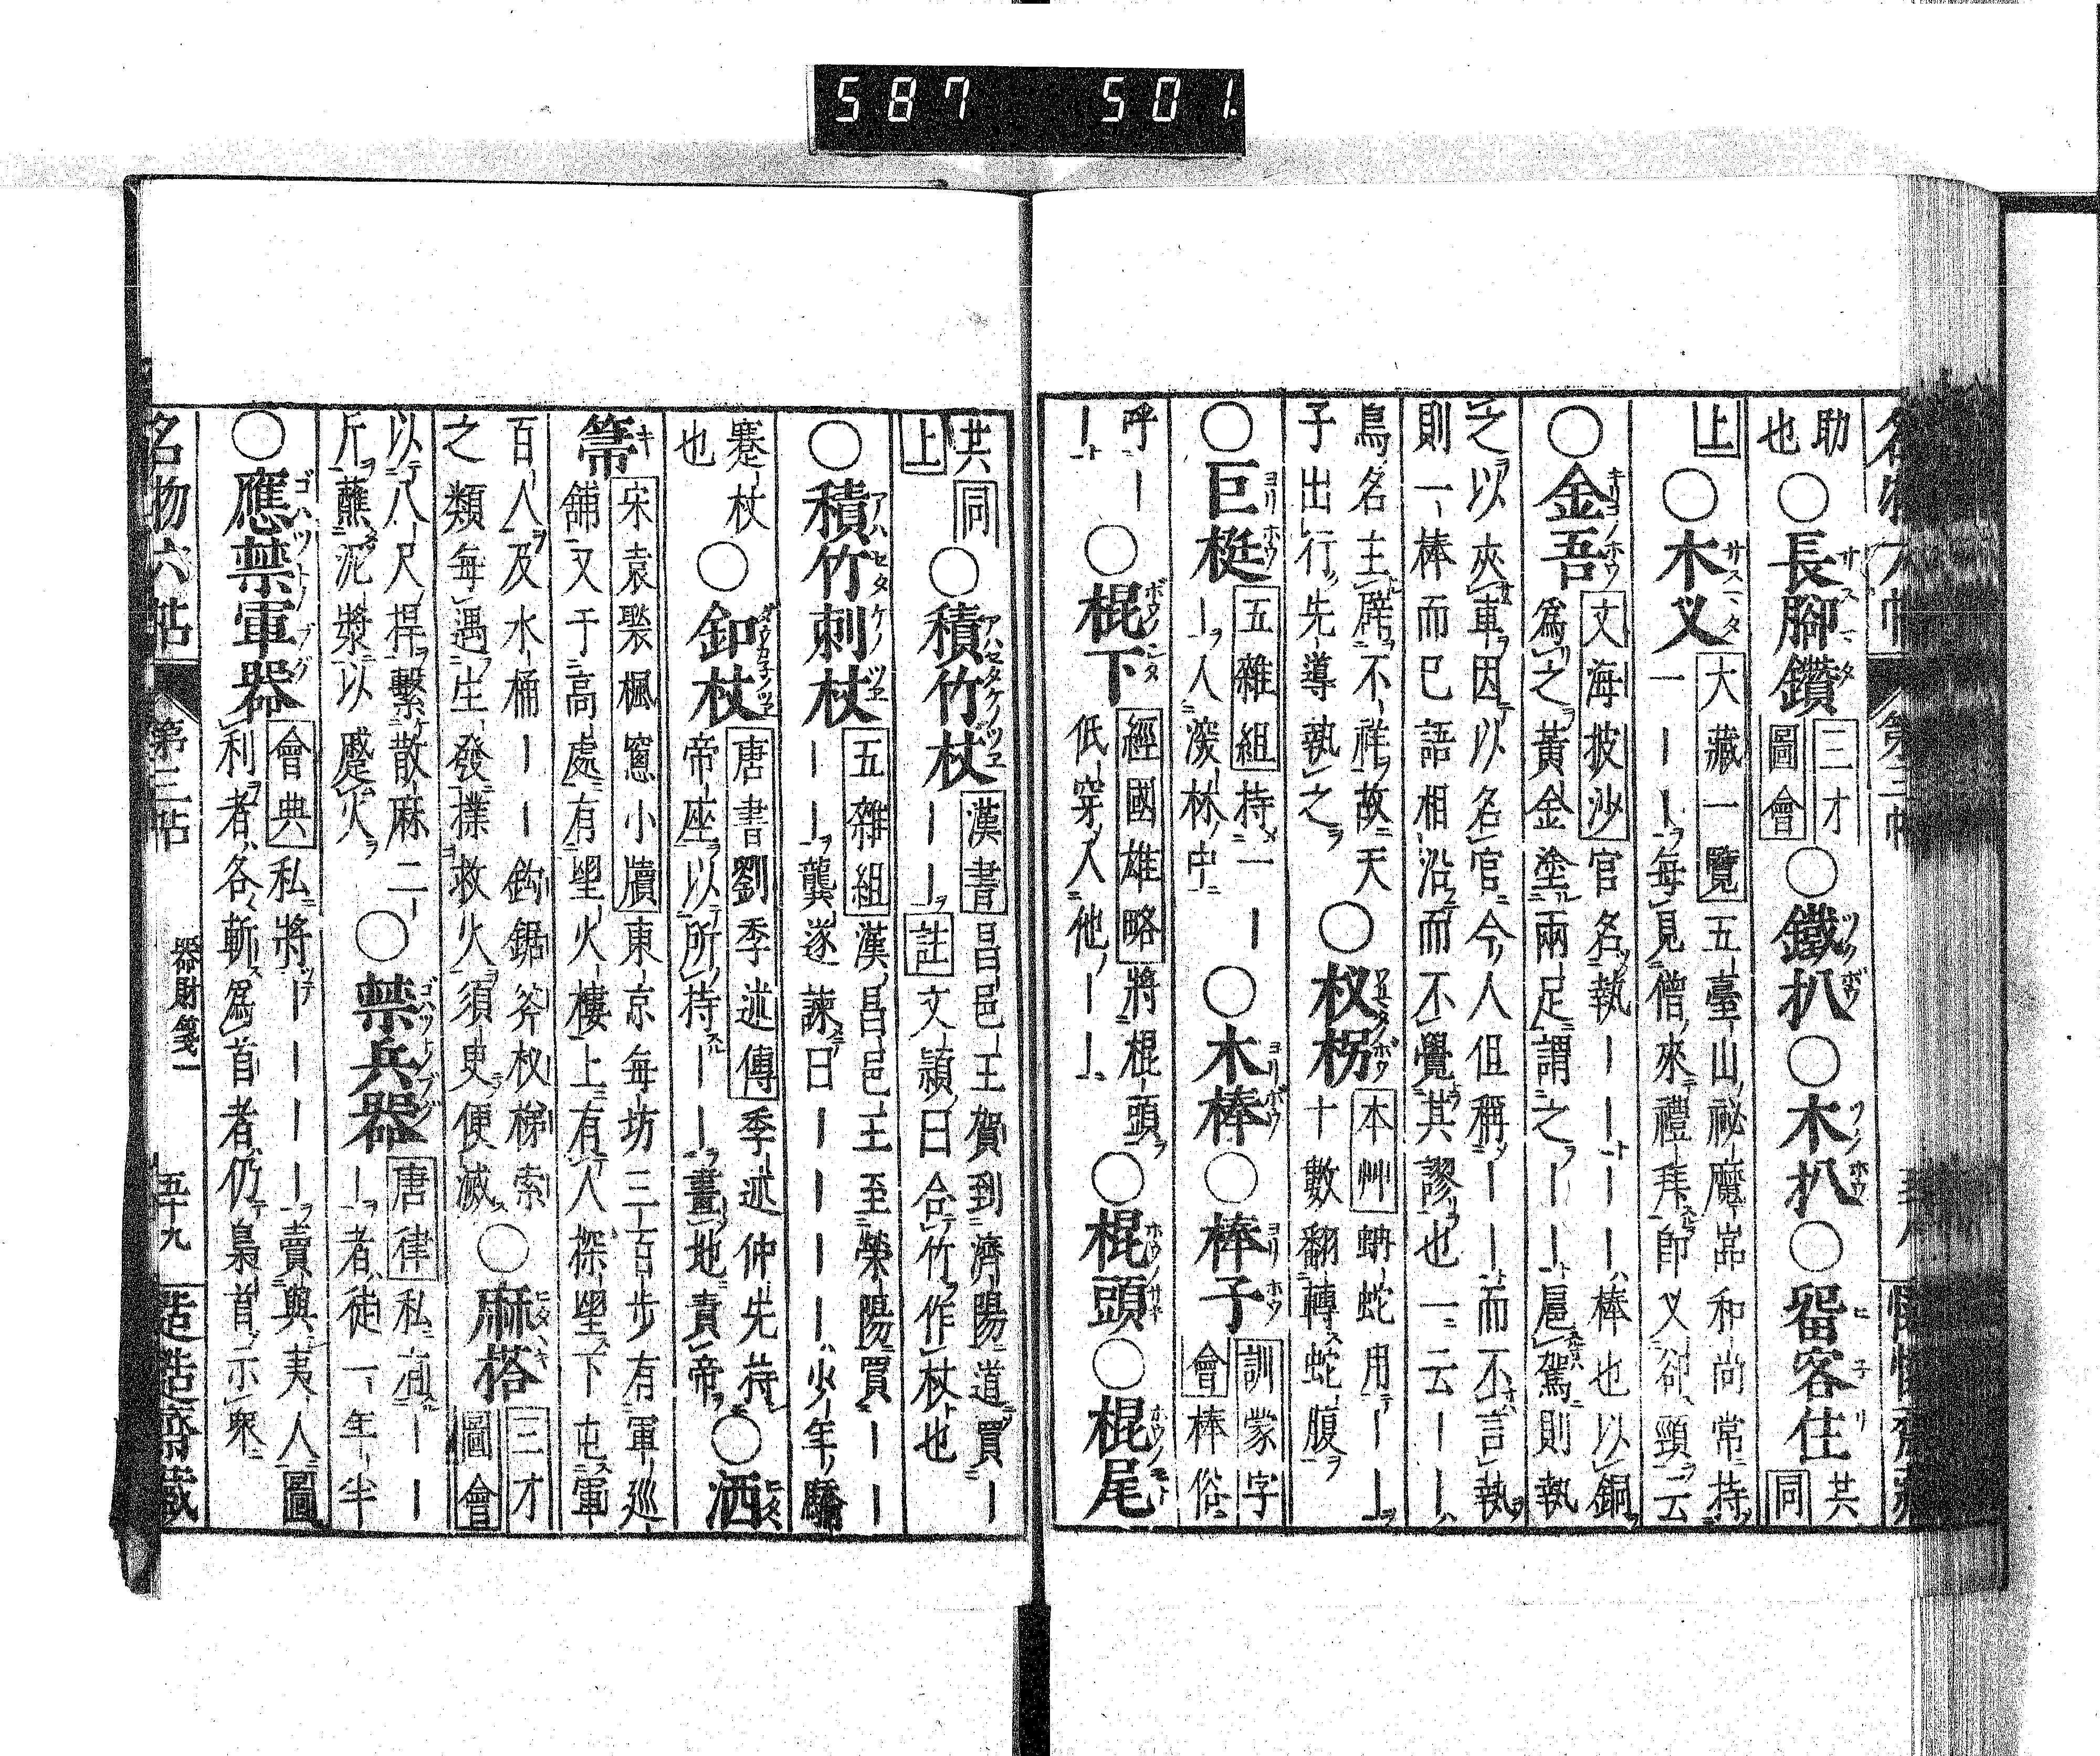 587 501.
助
也
○長腳鑽 三才
圖會
○鐵扒○木扒○畱客住 共
同
上
○木叉 大藏一覽五臺山祕魔嵓和尚常持
一｜｜每見僧來禮拜即叉卻頸云
○金吾 文海披沙官名執｜｜｜｜棒也以銅
爲之黃金塗兩足謂之｜｜扈駕則執
之以夾車因以名官今人但稱｜｜而不言執
則一棒而已語相沿而不覺其謬也一云｜｜
鳥名主辟不祥故天
子出行先導執之
○杈柺 本艸蚺蛇用｜｜
十數翻轉蛇腹
○巨梃 五雜組持一｜
｜人深林中
○木棒○棒子 訓蒙字
會棒俗
呼｜
｜
○棍下 經國雄略將棍頭
低穿入他｜｜
○棍頭○棍尾
共同
上
○積竹杖 漢書昌邑王賀到濟陽道買｜
｜｜註文穎曰合竹作杖也
○積竹刺杖 五雜組漢昌邑王至榮陽買｜｜
｜｜龔遂諫曰｜｜｜｜少年驕
蹇杖
也
○釦杖 唐書劉季述傳季述仲先持
帝座以所持｜｜畫地責帝
○洒
箒 宋袁褧楓窻小牘東京每坊三百步有軍巡
舖又于高處有望火樓上有人探望下屯軍
百人及水桶｜｜鈎鋸斧杈梯索
之類每遇生發撲救火須臾便滅
○麻搭 三才
圖會
以八尺捍繫散麻二
斤蘸泥漿以蹙火
○禁兵器 唐律私有｜｜
｜者徒一年半
○應禁軍器 會典私將｜｜｜｜賣與夷人圖
利者各斬爲首者仍梟首示衆
名物六帖 第三帖 器財箋一 五十九